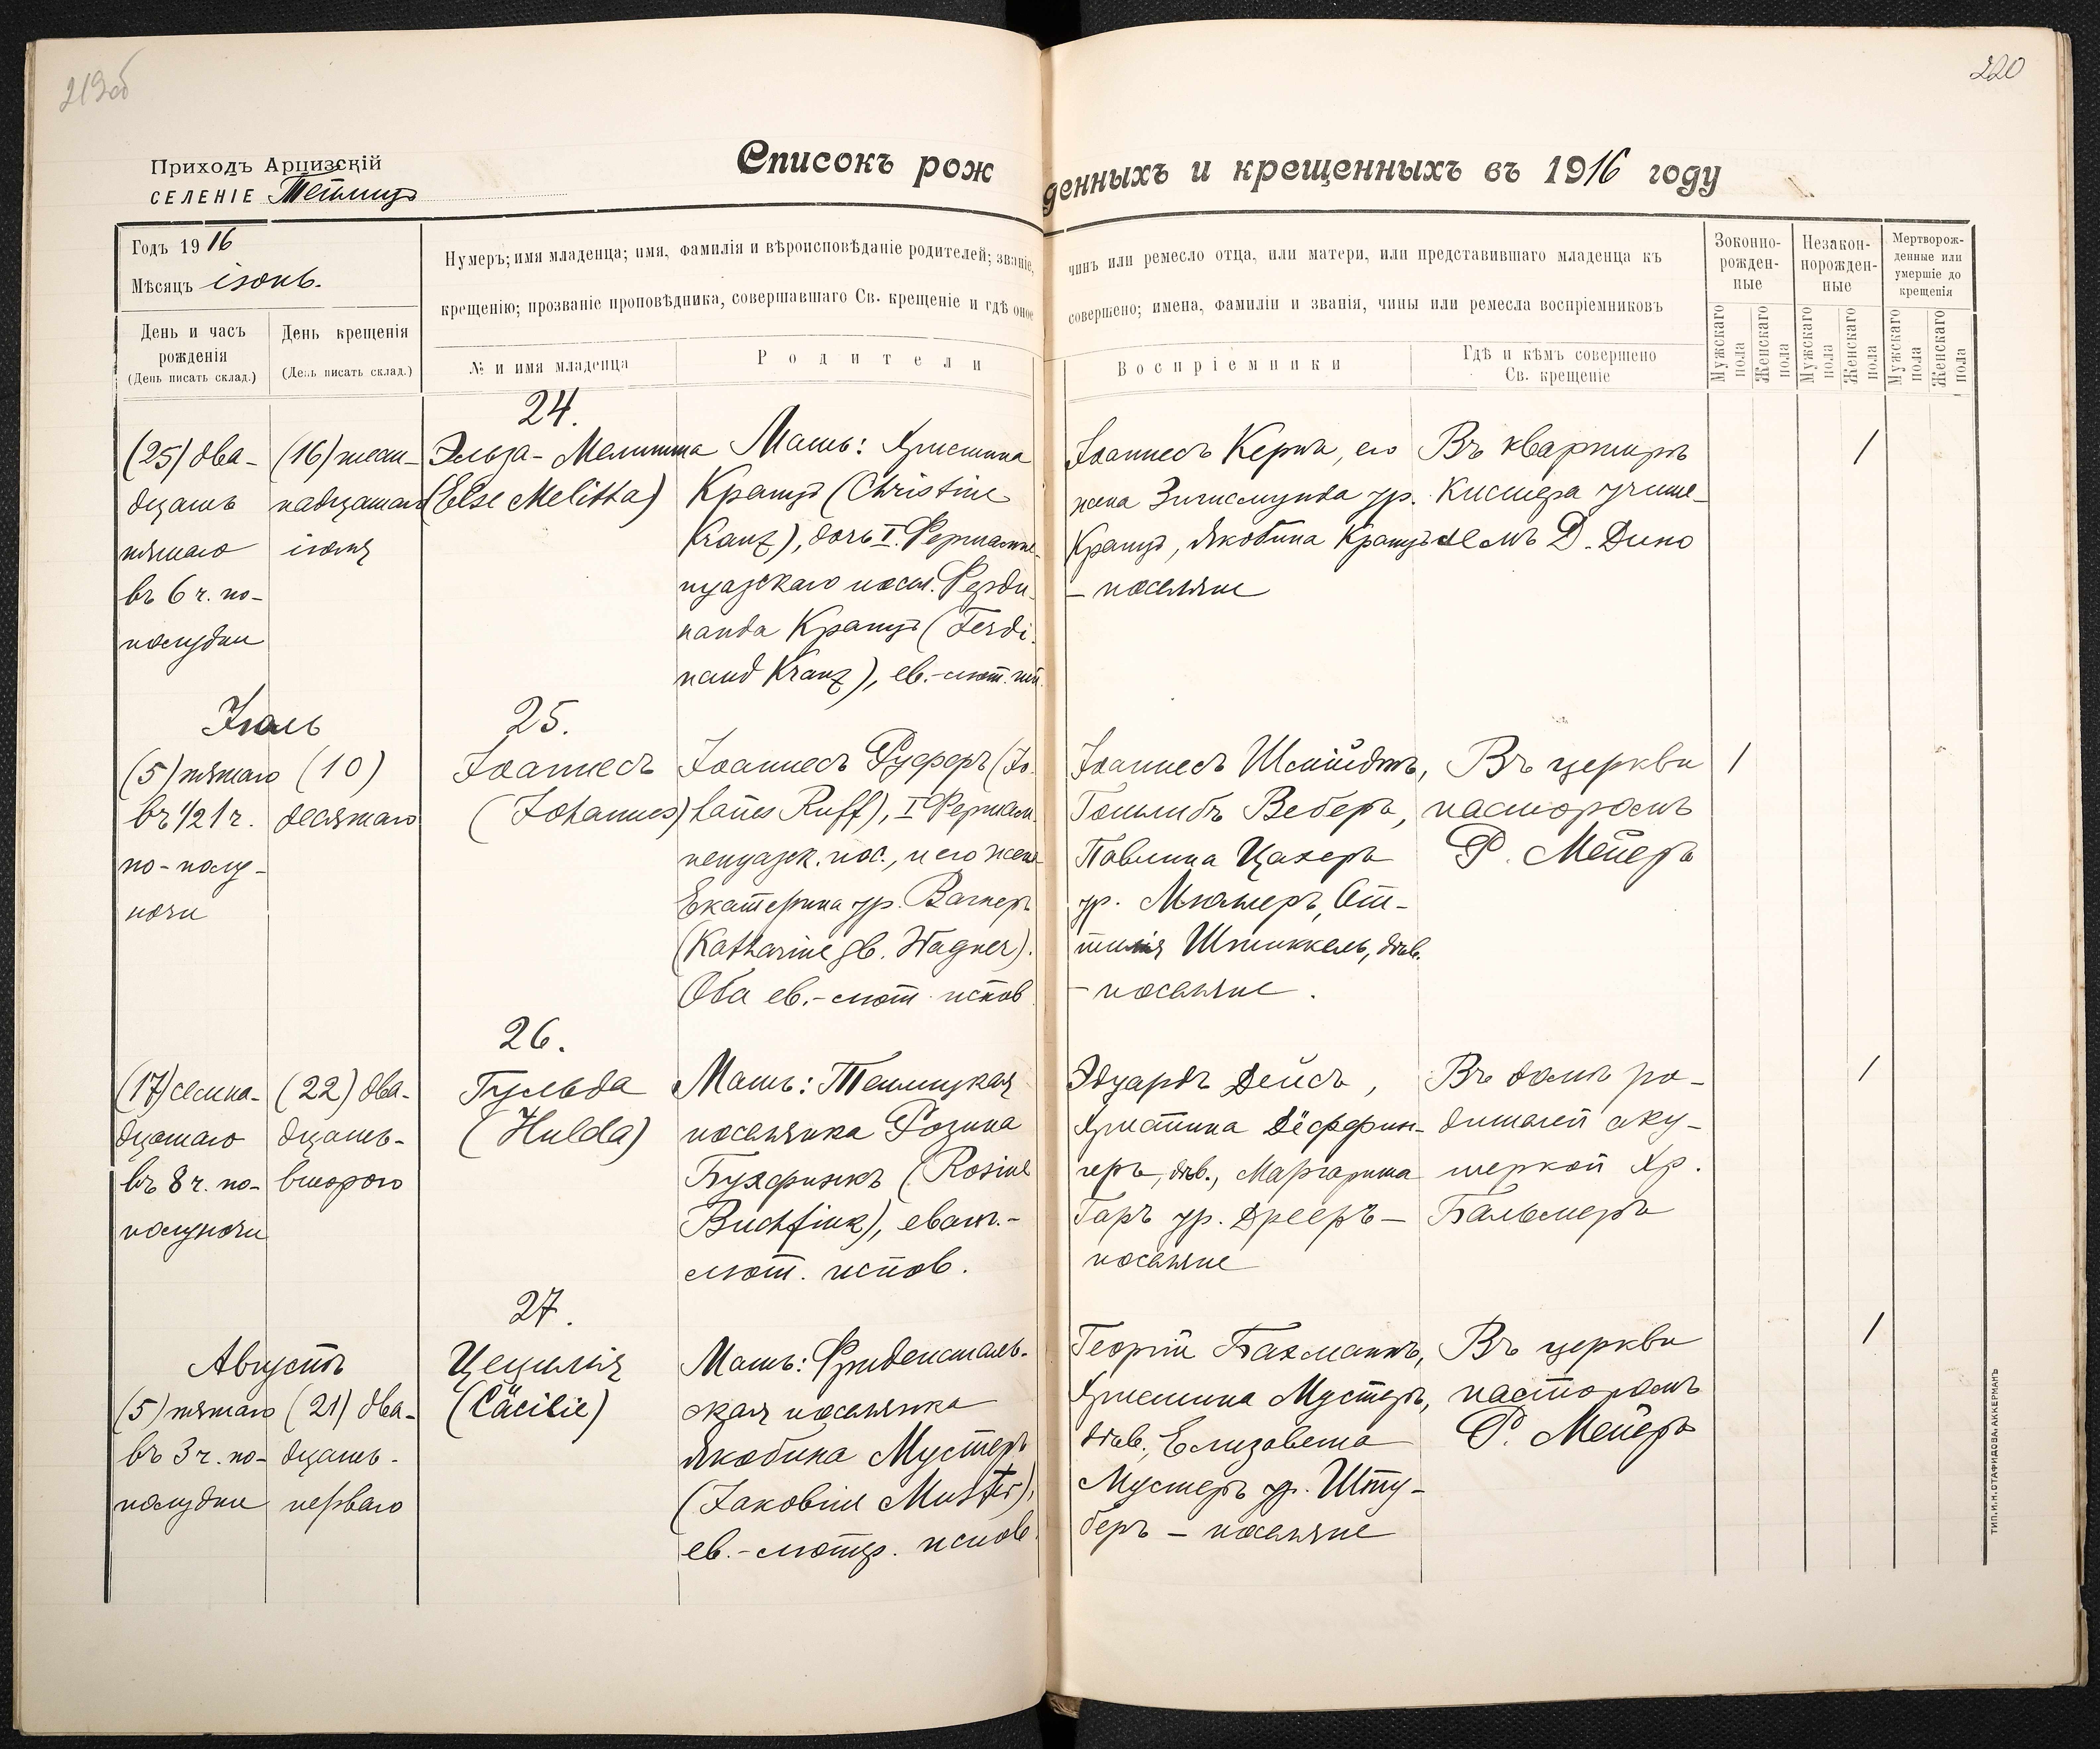 219об
220
Приходъ Арцизскій
СЕЛЕНІЕ Теплицъ
Списокъ рожденныхъ и крещенныхъ въ 1916 году
Годъ 1916
Мѣсяцъ іюнь.
День и часъ рожденія
(День писать склад.)
День крещенія
(День писать склад.)
Нумеръ; имя младенца; имя, фамилія и вѣроисповѣданіе родителей; званіе, чинъ или ремесло отца, или матери, или представившаго младенца къ
крещенію; прозваніе проповѣдника, совершавшаго Св. крещеніе и гдѣ оное совершено; имена, фамиліи и званія, чины или ремесла воспріемниковъ
№ и имя младенца
Родители
Воспріемники
Гдѣ и кѣмъ совершено
Св. крещеніе
Законно-
рожден-
ные
Незакон-
норожден-
ные
Мертворож-
денные или
умершіе до
крещенія
Мужскаго пола
Женскаго пола
Мужскаго пола
Женскаго пола
Мужскаго пола
Женскаго пола
24.
(25) два-
дцать
пятаго
въ 6 ч. по-
полудни
(16) шест-
надцатаго
іюля
Эльза-Мелитта
(Else Melitta)
Мать: Христина
Кранцъ (Christine
Kranz), дочь I. Фершампе-
нуазскаго посел. Ферди-
нанда Кранцъ (Ferdi-
nand Kranz), ев.-лют. исп.
Іоаннесъ Кернъ, его
жена Зигисмунда ур.
Кранцъ, Якобина Кранцъ
- поселяне
Въ квартирѣ
кистера учите-
лемъ Д. Дино
/
Іюль
25.
(5) пятаго
въ ½1 ч.
по-полу-
ночи
(10)
десятаго
Іоаннесъ
(Johannes)
Іоаннесъ Руффъ (Jo-
hanes Ruff), I Фершам-
пенуазск. пос., и его жена
Екатерина ур. Вагнеръ
(Katharine gb. Wagner).
Оба ев.-лют. испов.
Іоаннесъ Шмидтъ,
Готлибъ Веберъ,
Павлина Цахеръ
ур. Мюллеръ, От-
тилія Штиккель, дѣв.
- поселяне.
Въ церкви
пасторомъ
Р. Мейеръ
/
26.
(17) семна-
дцатаго
въ 8 ч. по-
полуночи
(22) два-
дцать-
второго
Гульда
(Hulda)
Мать: Теплицкая
поселянка Розина
Бухфинкъ (Rosine
Buchfink), еванг.-
лют. испов.
Эдуардъ Дейсъ,
Христина Дёффин-
геръ, дѣв., Маргарита
Гаръ ур. Дрееръ -
поселяне
Въ домѣ ро-
дителей аку-
шеркой Хр.
Бальмеръ
/
27.
Августъ
(5) пятаго
въ 3 ч. по-
полудни
(21) два-
дцать-
перваго
Цецилія
(Cäcilie)
Мать: Фриденсталь-
ская поселянка
Якобина Мустеръ
(Jakobine Muster),
ев.-лютр. испов.
Георгій Бахманнъ,
Христина Мустеръ,
дѣв., Елизавета
Мустеръ ур. Шту-
беръ - поселяне
Въ церкви
пасторомъ
Р. Мейеръ
/
ТИП. И. Н. СТАФИДОВА. АККЕРМАНЪ